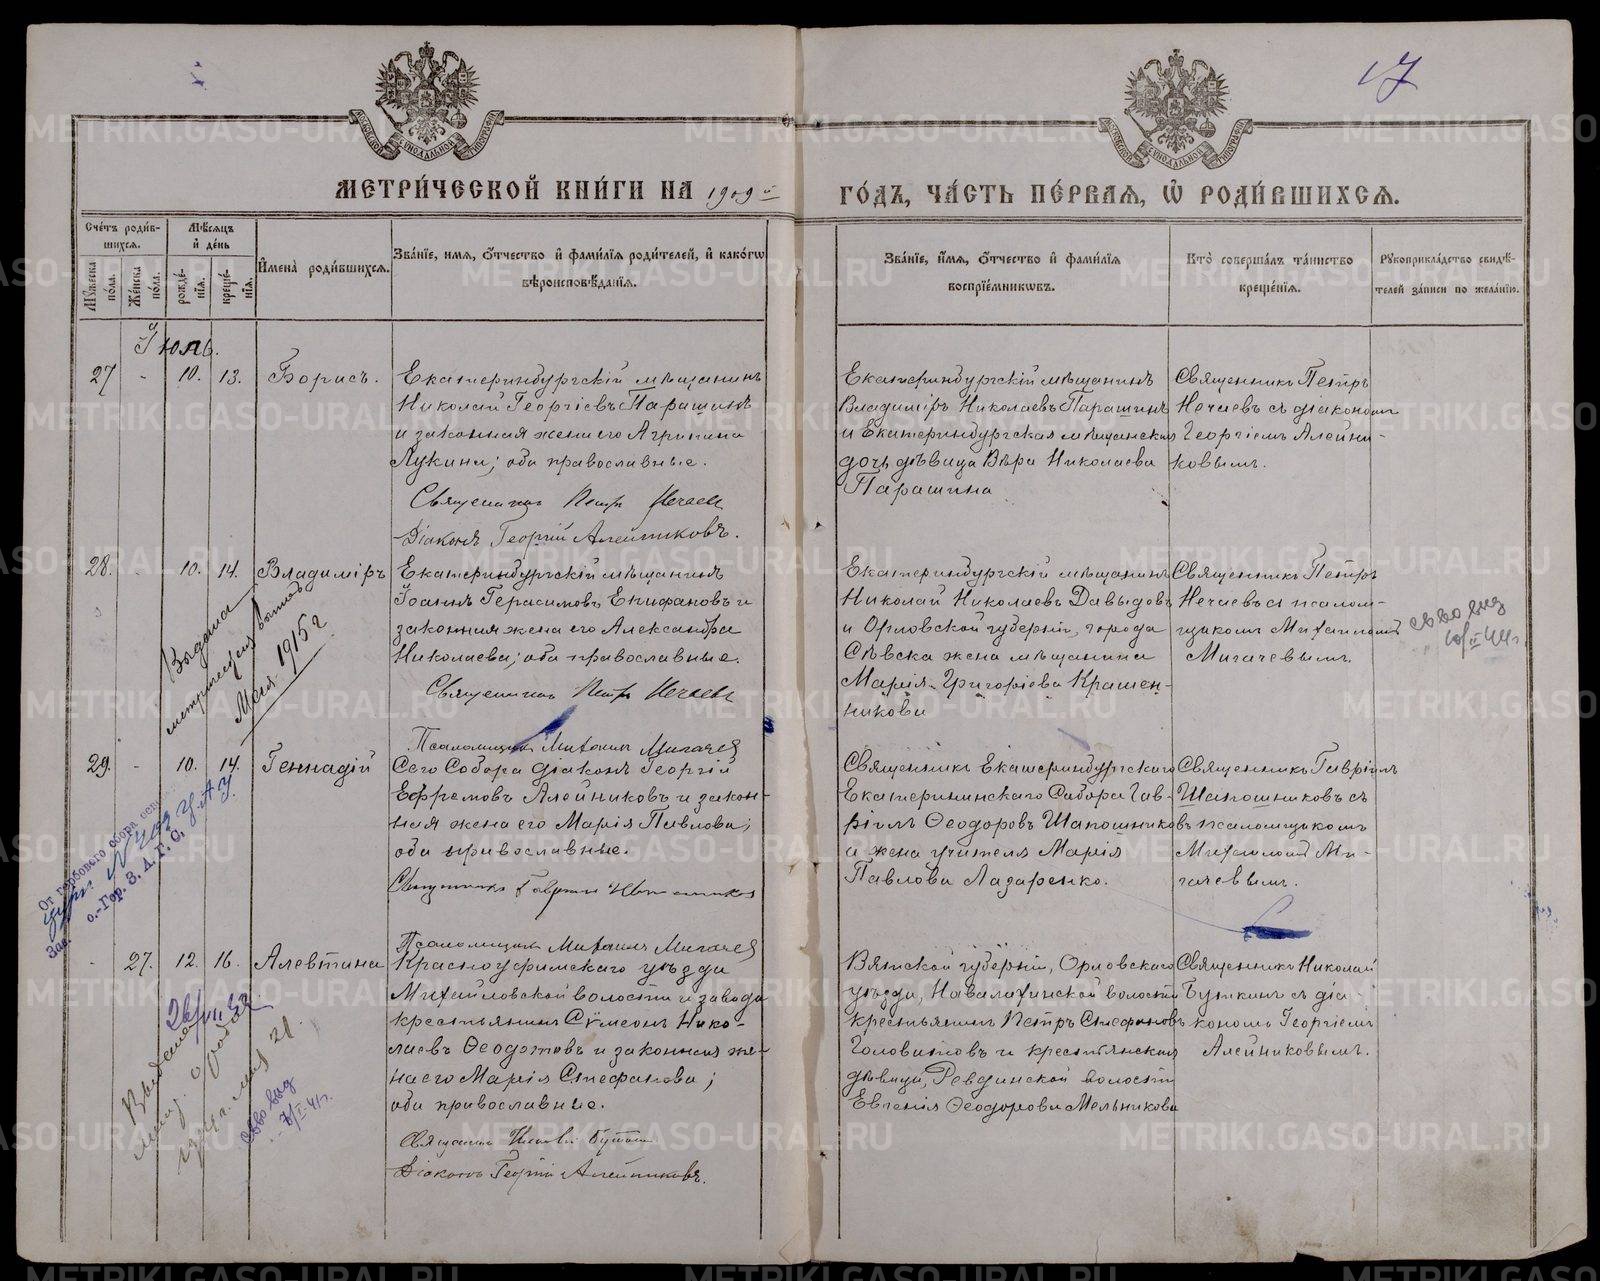 17
МЕТРИ́ЧЕСКОЙ КНИ́ГИ НА 1909 й
ГО́ДЪ, ЧА́СТЬ ПЕ́РВАЯ, Ѡ҆ РОДИ́ВШИХСЯ.
Сче́тъ роди́в-
шихся.
Мѣ́сяцъ
и҆ де́нь
Мꙋ́жеска
по́ла.
Же́нска
по́ла.
рожде́-
нїя.
креще́-
нїя.
И҆мена̀ роди́вшихся.
Зва́нїе, и҆мя, ѻ҆́тчество и҆ фами́лїя роди́телей, и҆ како́гѡ
вѣроисповѣ́данїя.
Зва́нїе, и҆́мя, ѻ҆́тчество и҆ фами́лїя
воспрїе́мникѡвъ.
Кто̀ соверша́лъ та́инство
креще́нїя.
Рꙋкоприкла́дство свидѣ́-
телей за́писи по жела́нїю.
Июль.
27 - 10. 13. Борисъ.
Екатеринбургскій мѣщанинъ
Николай Георгіевъ Парашинъ
и законная жена его Агрипина
Лукина; оба православные.
Священникъ Петръ Нечаевъ
Діаконъ Георгій Алейниковъ.
Екатеринбургскій мѣщанинъ
Владиміръ Николаевъ Парашинъ
и Екатеринбургская мѣщанская
дочь дѣвица Вѣра Николаева
Парашина
Священникъ Петръ
Нечаевъ съ діакономъ
Георгіемъ Алейни-
ковымъ.
28. - 10. 14. Владиміръ
Выдана
метрическая
Мая 1915 г
Екатеринбургскій мѣщанинъ
Іоаннъ Герасимовъ Епифановъ и
законная жена его Александра
Николаева; оба православные.
Священникъ Петръ Нечаевъ
Псаломщикъ Михаилъ Мигачевъ
Екатеринбургскій мѣщанинъ
Николай Николаевъ Давыдовъ
и Орловской губерніи, города
Сѣвска жена мѣщанина
Марія Григоріева Крашен-
никова
Священникъ Петръ
Нечаевъ съ псалом-
щикомъ Михаиломъ
Мигачевымъ.
св во выд
10/II 44 г.
29. - 10. 14. Геннадій
От гербового сбора осв
о.-Гор. З. А. Г. С.
Зав.
Сего Собора діаконъ Георгій
Ефремовъ Алейниковъ и закон-
ная жена его Марія Павлова;
оба православные.
Священникъ Гавріилъ Шапошниковъ
Псаломщикъ Михаилъ Мигачевъ
Священникъ Екатеринбургскаго
Екатерининскаго Собора Гав-
ріилъ Ѳеодоровъ Шапошниковъ
и жена учителя Марія
Павлова Лазаренко.
Священникъ Гавріилъ
Шапошниковъ съ
псаломщикомъ
Михаиломъ Ми-
гачевымъ.
- 27. 12. 16. Алевтина
Выдана
мая 21.
св во выд
Красноуфимскаго уѣзда
Михайловской волости и завода
крестьянинъ Сѵмеонъ Нико-
лаевъ Ѳеодотовъ и законная же-
на его Марія Стефанова;
оба православные.
Священникъ Николай Буткинъ
Діаконъ Георгій Алейниковъ.
Вятской губерніи, Орловскаго
уѣзда, Навалихинской волости
крестьянинъ Петръ Стефановъ
Головизовъ и крестьянская
дѣвица, Ревдинской волости
Евгенія Ѳеодорова Мельникова
Священникъ Николай
Буткинъ съ діа
кономъ Георгіемъ
Алейниковымъ.